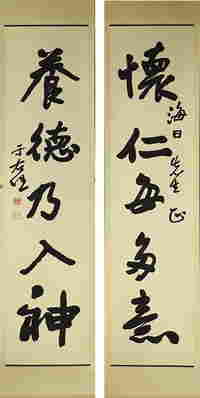 懷仁每多
海日先生正
養德乃入神
于右任